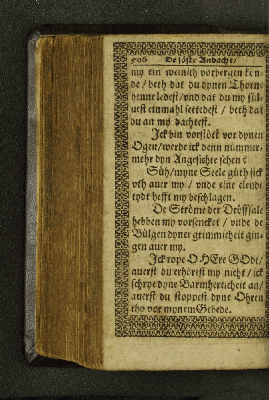 506 De söste Andacht/
my ein weinich vorhergen kün-
de/ beth dat du dynen Thorn
henne ledest/ vnd dat du my sül-
uest einmahl settedest/ beth dat
du an my dachtest.
Ick bin vorstöt vor dynen
Ogen/ werde ick denn nummer-
mehr dyn Angesichte sehen?
Süh/ myne Seele güth sick
vth auer my/ vnde eine elende
tydt hefft my beschlagen.
De Ströme der Dröffsale
hebben my vorsencket/ vnde de
Bülgen dyner grimmicheit gin-
gen auer my.
Ick rope O HEre GOdt/
auerst du erhörest my nicht/ ick
schrye dyne Barmherticheit an/
auerst du stoppest dyne Ohren
tho vor mynem Gebede.